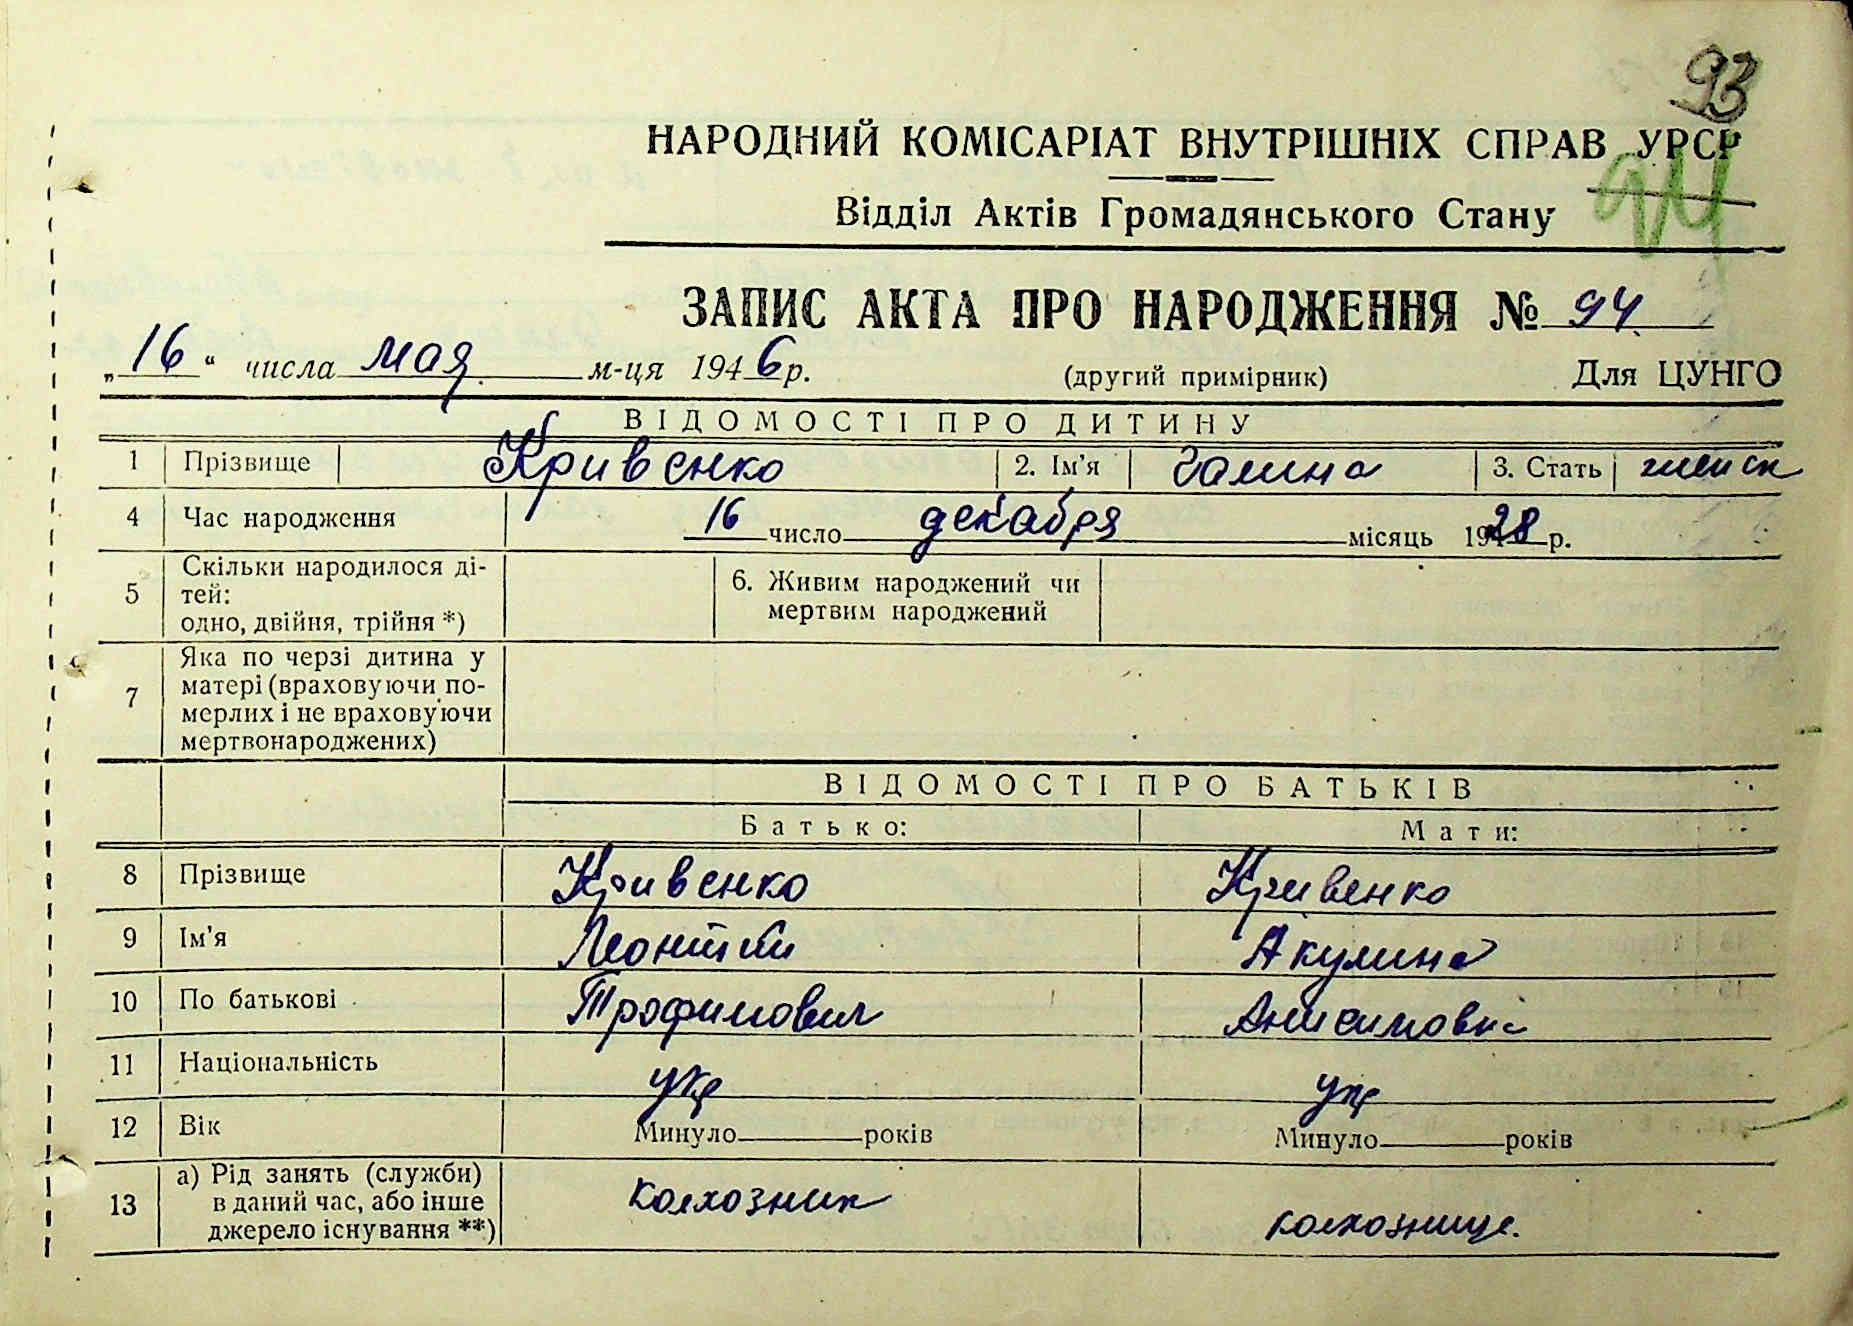 93
НАРОДНИЙ КОМІСАРІАТ ВНУТРІШНІХ СПРАВ УРСР
94
Відділ Актів Громадянського Стану
ЗАПИС АКТА ПРО НАРОДЖЕННЯ № 94
„16“ числа мая м-ця 1946 р. (другий примірник) Для ЦУНГО
ВІДОМОСТІ ПРО ДИТИНУ
1 Прізвище Кривенко 2. Ім'я Галина 3. Стать женск
4 Час народження 16 число декабря місяць 1928 р.
5 Скільки народилося ді-
тей:
одно, двійня, трійня *)
6. Живим народжений чи
мертвим народжений
7 Яка по черзі дитина у
матері (враховуючи по-
мерлих і не враховуючи
мертвонароджених)
ВІДОМОСТІ ПРО БАТЬКІВ
Батько: Мати:
8 Прізвище Кривенко Кривенко
9 Ім'я Леонтий Акулина
10 По батькові Трофимович Анисимовна
11 Національність укр укр
12 Вік Минуло років Минуло років
13 а) Рід занять (служби)
в даний час, або інше
джерело існування **)
колхозник колхозница.